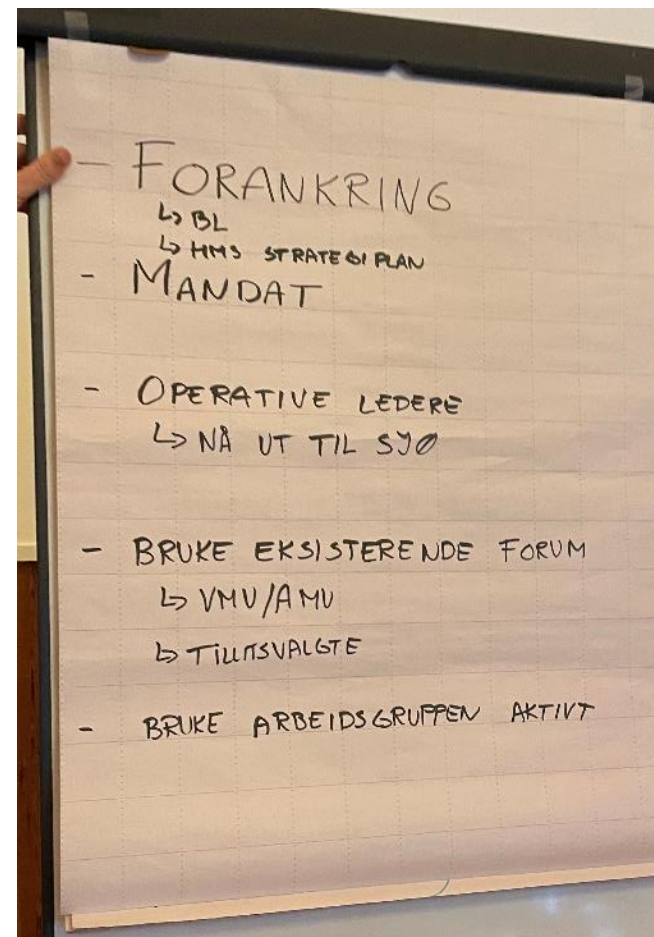 - FORANKRING
↳ BL
↳ HMS STRATEGIPLAN
- MANDAT
- OPERATIVE LEDERE
↳ NÅ UT TIL SJØ
- BRUKE EKSISTERENDE FORUM
↳ VMU/AMU
↳ TILLITSVALGTE
- BRUKE ARBEIDSGRUPPEN AKTIVT